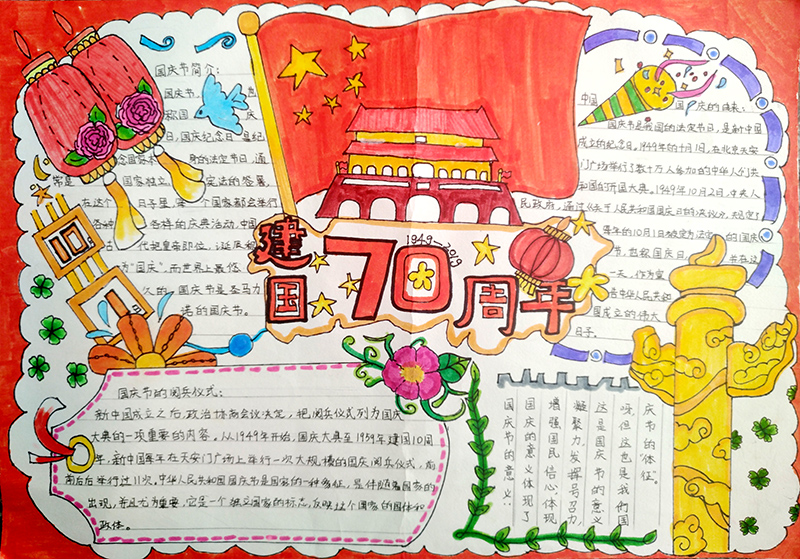 国庆节简介:
国庆节
称国 庆
日,国庆纪念日 是纪
念国家本 身的法定节日,通
常是 国家独立、 宪法的签署、
在这个 日子里, 一个国家都会举行
各种 各样的庆典活动,中国
古 代皇帝即位、诞辰称
为"国庆",而世界上最悠
久的 国庆节是圣马力
诺的国庆节。
1949-2019
建国70周年
10
1
中国 国庆的由来:
国庆节是我国的法定节日,是新中国
成立的纪念日。1949年的十月1日,在北京天安
门广场举行了数十万人参加的中华人们共
和国的开国大典。1949年10月2日,中央人
民政府,通过《关于人民共和国国庆日的决议》,规定了
每年的10月1日被定为法定 的国庆
节,也称国庆日, 并在这
一天,作为宣
告中华人民共和
国成立的伟大
日子。
国庆节的阅兵仪式:
新中国成立之后,政治协商会议决定,把阅兵仪式列为国庆
大典的一项重要的内容。从1949年开始,国庆大典至1959年建国10周
年,新中国每年在天安门广场上举行一次大规模的国庆阅兵仪式,前
前后后举行过11次。中华人民共和国国庆节是国家的一种象征,是伴随着国家的
出现,并且尤为重要,它是一个独立国家的标志,反映这个国家的国体和
政体。
国庆节的意义:
国庆的意义体现了
增强国民信心,体现
凝聚力,发挥号召力,
这是国庆节的意义
呀,但这也是我们国
庆节的"体征"。